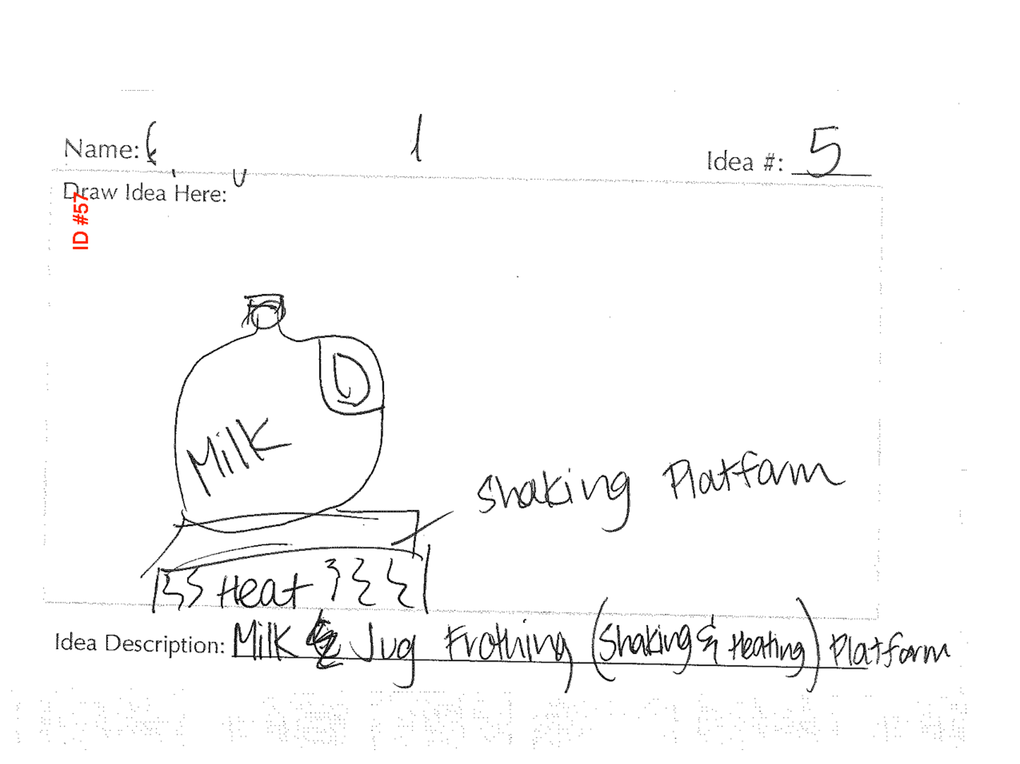 Name:
1
Idea #: 5
Draw Idea Here:
ID #57
Milk
Shaking Platform
Heat
Idea Description: Milk Jug Frothing (Shaking & Heating) Platform